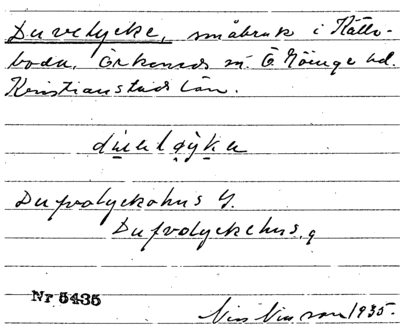 Duvelycke, småbruk i Källe-
boda, Örkeneds sn. Ö. Göinge hd.
Kristianstads län.
Dufvolyckohus
Dufvolyckehus
Nr 5435
Nils Nilsson 1935.